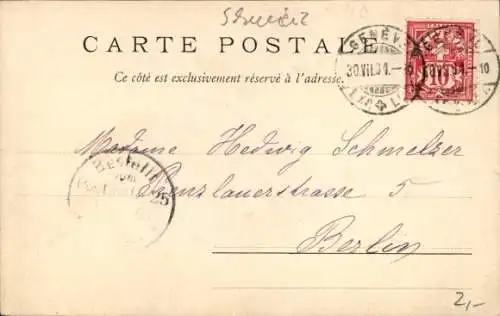 Schweiz
CARTE POSTALE
Ce côté est exclusivement réservé à l'adresse.
GENÈVE
30.VII.01.–10
10
Madame Hedwig Schmelzer
Prenzlauerstrasse 5
Berlin
Bestellt
vom
25
2,-